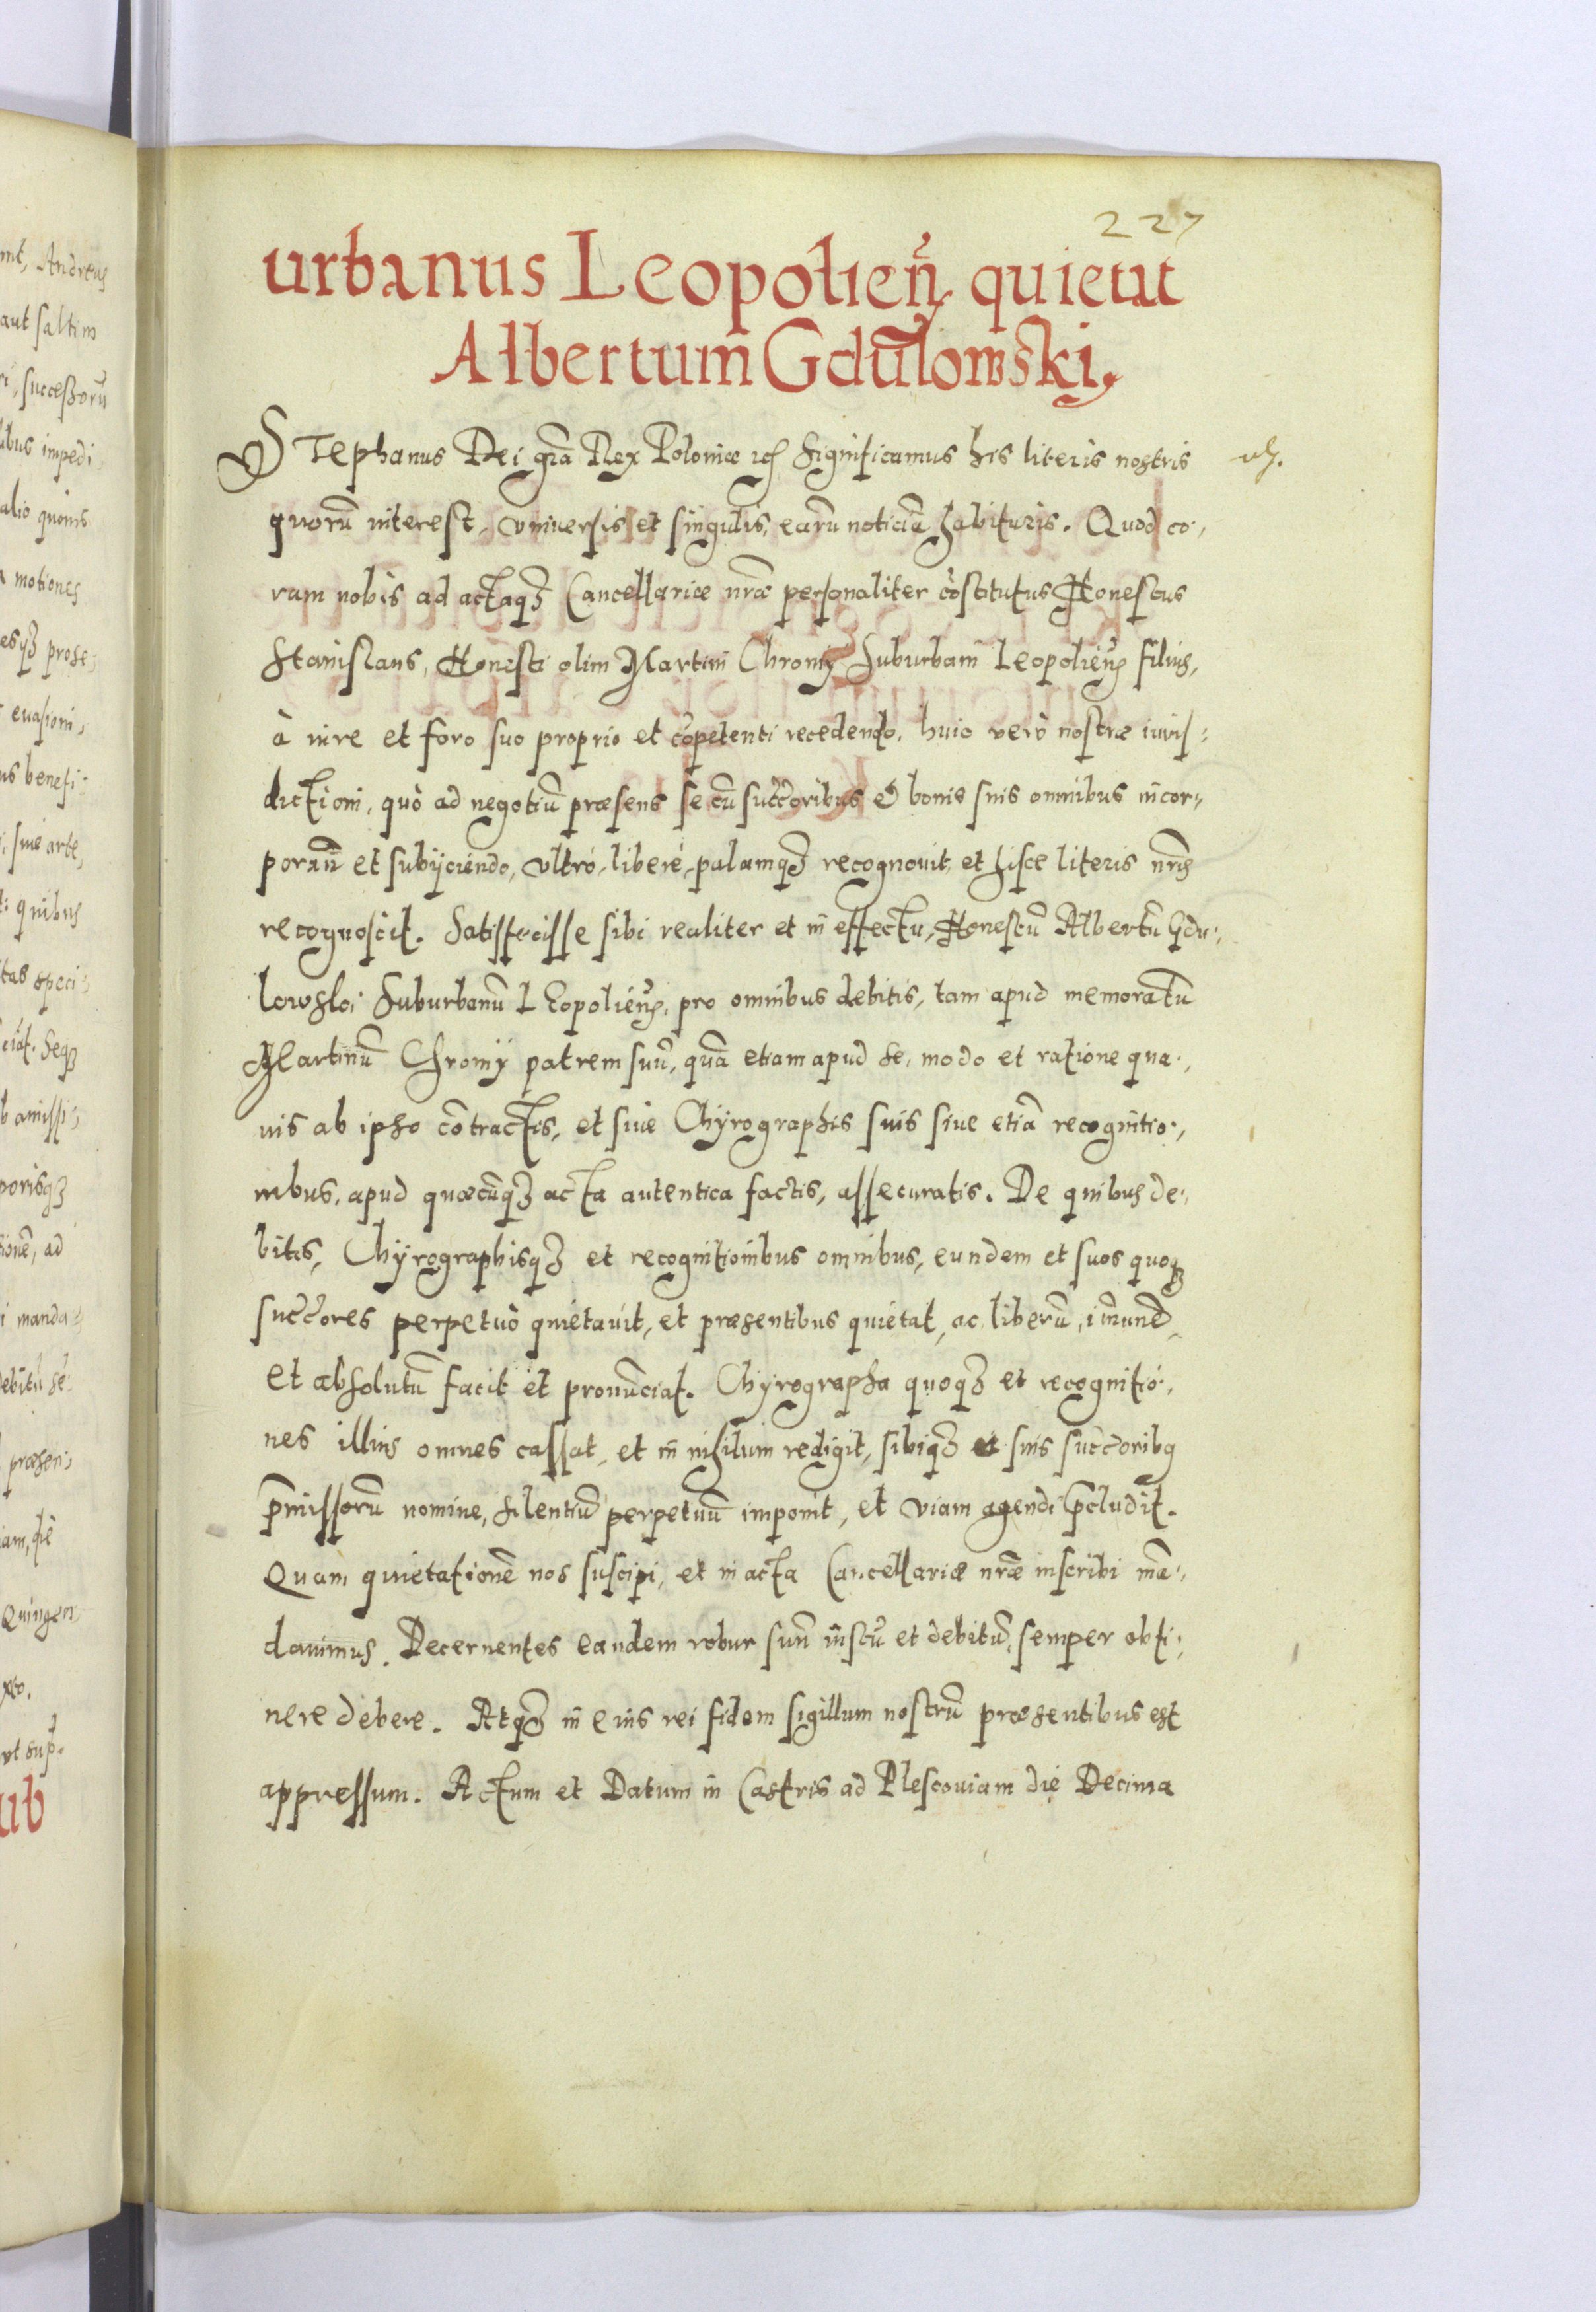 227
urbanus Leopolien̄ quietat
Albertum Gdulowski.
Stephanus Dei gr̃a Rex Poloniæ etc̃ Significamus his literis nostris
quorũ interest, vniuersis et singulis, earũ noticiã habituris. Quod co-
ram nobis ad actaqȝ Cancellariæ nr̃æ personaliter cõstitutus Honestus
Stanislaus, Honesti olim Martini Chromy Suburbani Leopolieñ filius,
à iure et foro suo proprio et cõpetenti recedendo, huic verò nostræ iuris-
dictioni, quò ad negotiũ præsens se cũ succ̃oribus & bonis suis omnibus incor-
porañ et subijciendo, vltrò, liberè, palamqȝ recognouit, et hisce literis nr̃is
recognoscit. Satisfecisse sibi realiter et in effectu, Honestũ Albertũ Gdu-
lowski Suburbanũ LEopolieñ, pro omnibus debitis, tam apud memoratũ
Martinũ Chromy patrem suũ, quã etiam apud se, modo et ratione qua-
uis ab ipso cõtractis, et siue Chyrographis suis siue etiã recognitio-
nibus, apud quæcũqȝ acta autentica factis, assecuratis. De quibus de-
bitis, Chyrographisqȝ et recognitionibus omnibus, eundem et suos quoqȝ
succ̃ores perpetuò quietauit, et præsentibus quietat, ac liberũ, im̃unẽ
et absolutũ facit et pronũciat. Chyrographa quoqȝ et recognitio-
nes illius omnes cassat, et in nihilum redigit, sibiqȝ et suis succ̃oribq
p̃missorũ nomine, silentiũ perpetuũ imponit, et viam agendi p̃cludit.
Quam quietationẽ nos suscipi, et in acta Cancellariæ nr̃æ inscribi mã-
dauimus. Decernentes eandem robur suũ iustũ et debitũ, semper obti-
nere debere. Atqȝ in eius rei fidem sigillum nostrũ præsentibus est
appressum. Actum et Datum in Castris ad Plescouiam die Decima